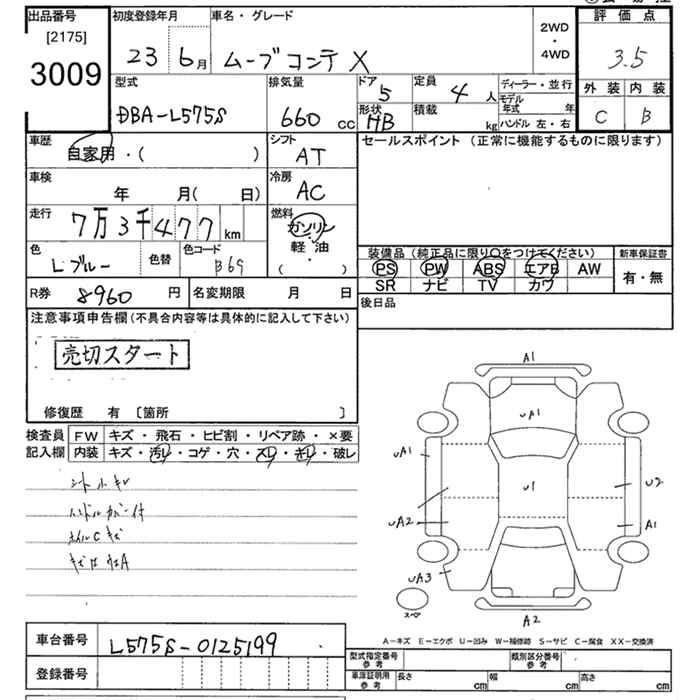 出品番号
[2175]
3009
初度登録年月
23 6月
車名・グレード
ムーブコンテ X
2WD
・
4WD
評価点
3.5
外装 内装
C B
型式
DBA-L575S
排気量
660 cc
ドア
5
形状
HB
定員
4 人
積載
kg
ディーラー・並行
モデル年式 年
ハンドル 左・右
車歴
自家用・( )
シフト
AT
セールスポイント (正常に機能するものに限ります)
車検
年 月( 日)
冷房
AC
走行
7万3千477km
燃料
ガソリン
軽・油
( )
色
Lブルー
色替
色コード
B69
装備品 (純正品に限り〇をつけてください)
PS PW ABS エアB AW
SR ナビ TV カワ
新車保証書
有・無
R券 8960円
名変期限 月 日
後日品
注意事項申告欄(不具合内容等は具体的に記入して下さい)
売切スタート
修復歴 有 〔箇所 〕
検査員
記入欄
FW キズ・飛石・ヒビ割・リペア跡・×要
内装 キズ・汚レ・コゲ・穴・スレ・キレ・破レ
ハンドルカバー付
ホイルCキズ
A1
UA1
UA1
U1
U2
UA2
A1
UA3
スペア
A2
A-キズ E-エクボ U-凹み W-補修跡 S-サビ C-腐食 XX-交換済
車台番号
L575S-0125199
登録番号
型式指定番号
参考
類別区分番号
参考
車庫証明用
参考
長さ cm
幅 cm
高さ cm